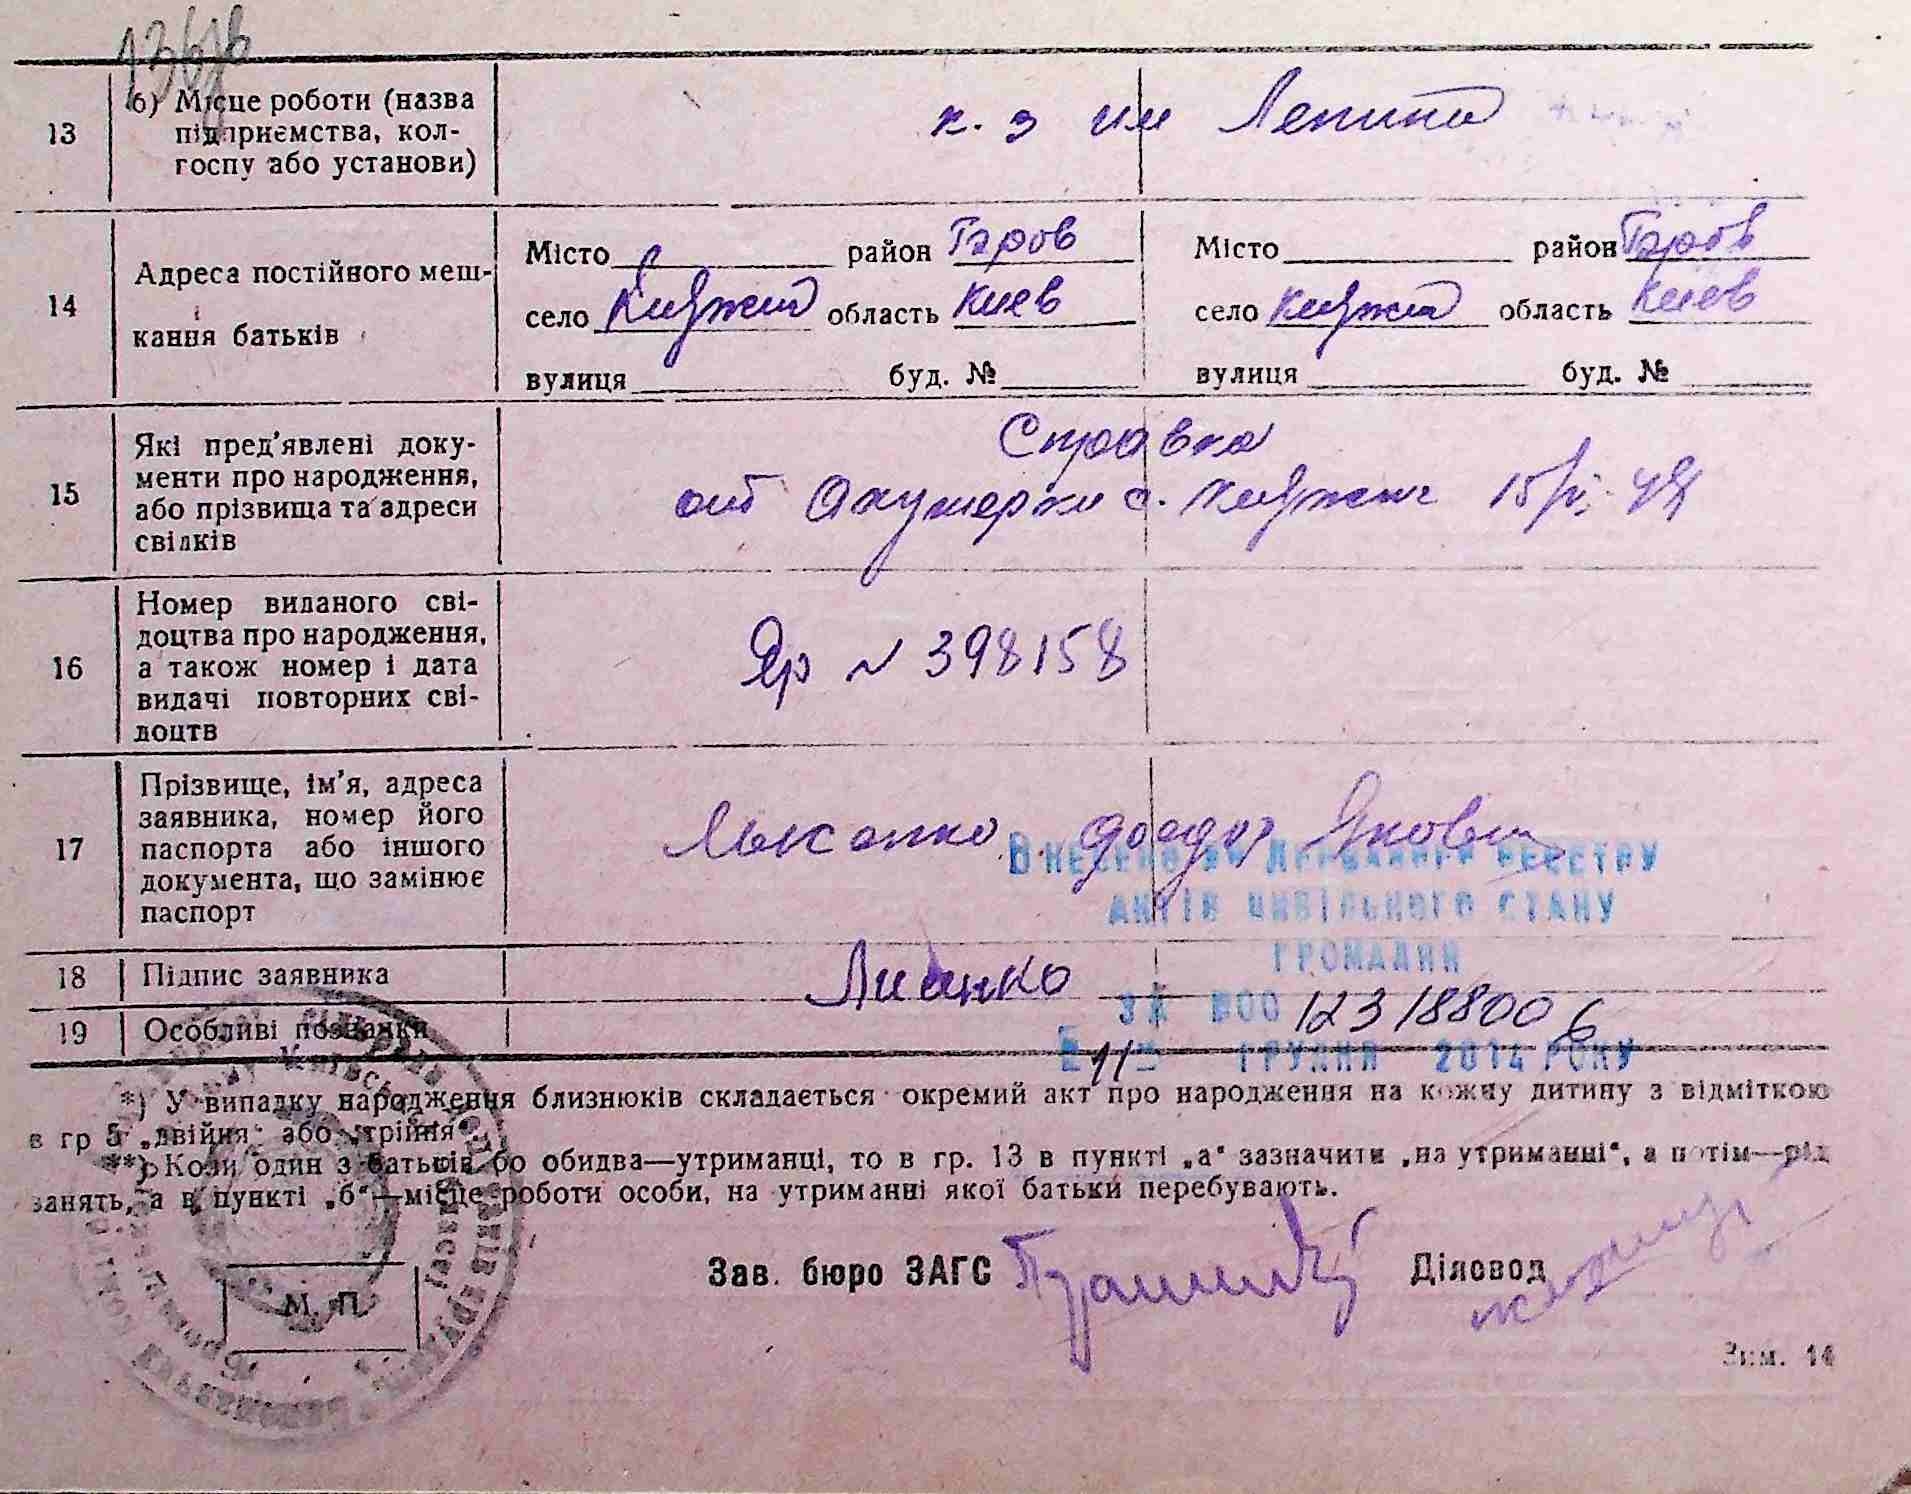 13 б) Місце роботи (назва
підприємства, кол-
госпу або установи)
к. з им Ленина
14 Адреса постійного меш-
кання батьків
Місто район Тэров Місто район Тэров
село Княжит область Киев село Княжит область Киев
вулиця буд. № вулиця буд. №
15 Які пред'явлені доку-
менти про народження,
або прізвища та адреси
свідків
Справка
от Акушерки с.
16 Номер виданого сві-
доцтва про народження,
а також номер і дата
видачі повторних сві-
доцтв
Яр № 398158
17 Прізвище, ім'я, адреса
заявника, номер його
паспорта або іншого
документа, що замінює
паспорт
Яковл
Внесено до Державного реєстру
актів цивільного стану
громадян
18 Підпис заявника
за №00 12318800 6
19 Особливі позначки
11 грудня 2014 року
*) У випадку народження близнюків складається окремий акт про народження на кожну дитину з відміткою
в гр 5 „двійня" або „трійня".
**) Коли один з батьків або обидва—утриманці, то в гр. 13 в пункті „а" зазначити „на утриманні", а потім—рід
занять, а в пункті „б"—місце роботи особи, на утриманні якої батьки перебувають.
Зав. бюро ЗАГС Діловод
М. П.
Зим. 14